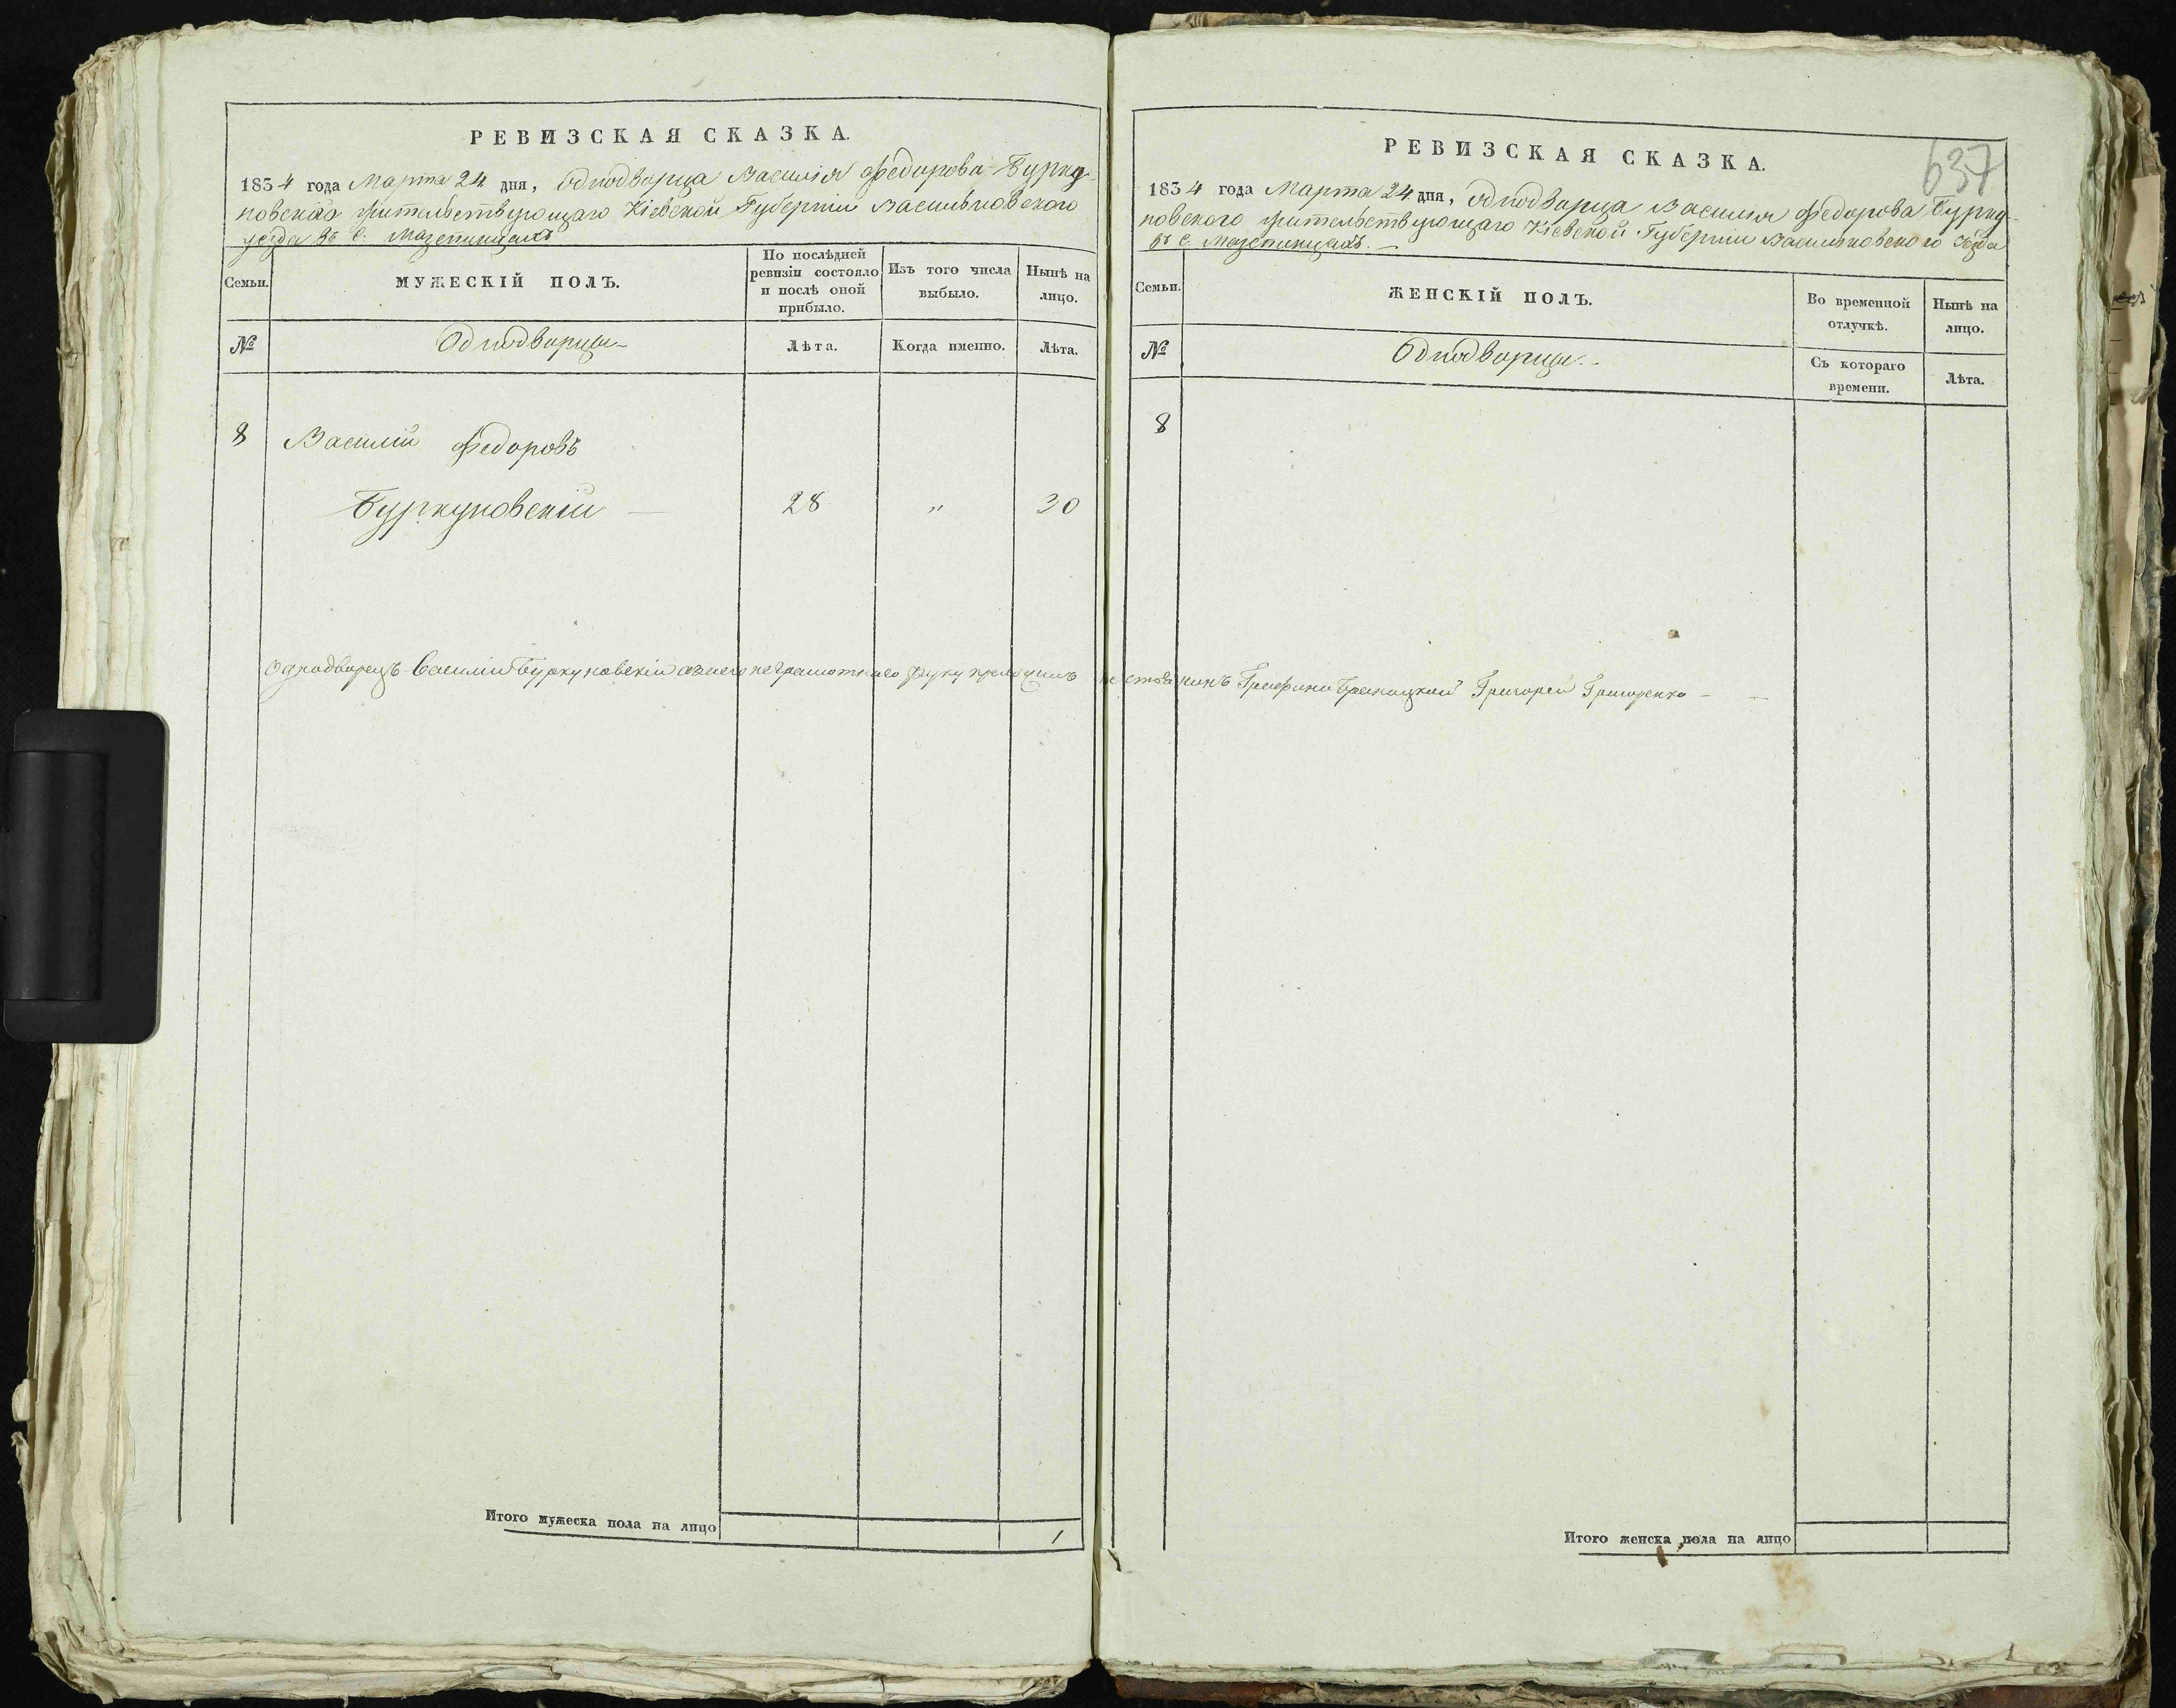 РЕВИЗСКАЯ СКАЗКА.
1834 года Марта 24 дня, Однодворца Василія Федорова Бурку-
новскаго жительствующаго Кіевской Губерніи Васильковского
уезда въ с. Мазепинцахъ
Семьи.
МУЖЕСКІЙ ПОЛЪ.
По послѣдней ревизіи состояло и послѣ оной прибыло.
Изъ того числа выбыло.
Нынѣ на лицо.
№
Однодворцы
Лѣта.
Когда именно.
Лѣта.
8 Василій Федоровъ
Буркуновскій — 28 „ 30
Однодворецъ Василій Буркуновскій а вместо неграмотнаго руку приложилъ
Итого мужеска пола на лицо 1
637
РЕВИЗСКАЯ СКАЗКА.
1834 года Марта 24 дня, Однодворца Василія Федорова Бурку-
новского жительствующаго Кіевской Губерніи Васильковского уезда
въ с. Мазепинцахъ. —
Семьи.
ЖЕНСКІЙ ПОЛЪ.
Во временной отлучкѣ.
Нынѣ на лицо.
№
Однодворцы.
Съ котораго времени.
Лѣта.
8
Графини Браницкой Григорей Григоренко —
Итого женска пола на лицо